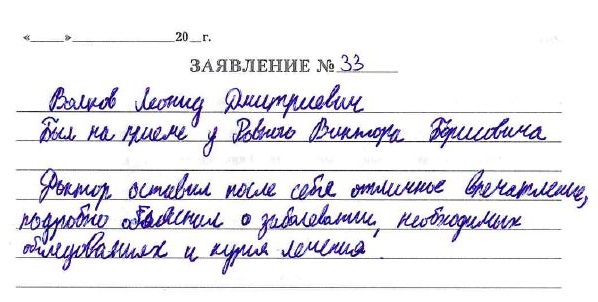 «____»______________20__г.
ЗАЯВЛЕНИЕ № 33
Волков Леонид Дмитриевич
Был на приеме у Ровного Виктора Борисовича
Доктор оставил после себя отличное впечатление,
подробно объяснил о заболевании, необходимых
обследованиях и курсе лечения